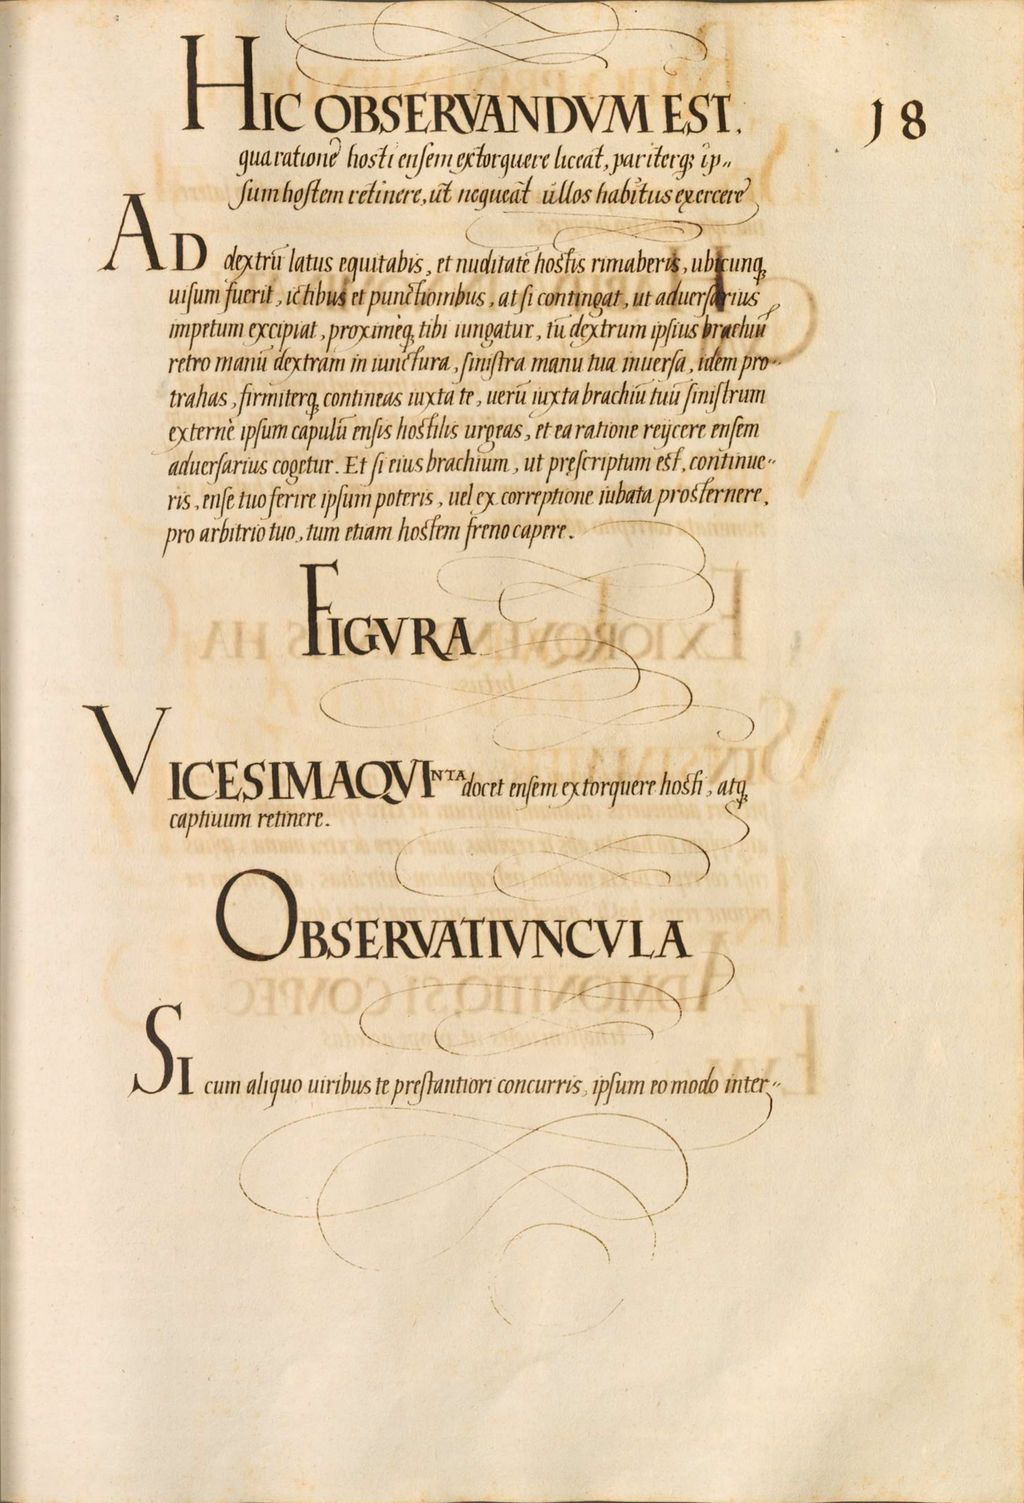 HIC OBSERVANDVM EST.
18
qua ratione hosti ensem extorquere liceat, pariterq; ip„
sum hostem retinere, ut nequeat ullos habitus exercere
AD dextrū latus equitabis, et nuditatē hostis rimaberis, ubicunq;
uisum fuerit, ictibus et punctionibus, at si contingat, ut aduersarius
impetum excipiat, proximèq; tibi iungatur, tū dextrum ipsius brachiū
retro manū dextram in iunctura, sinistra manu tua inuersa, idem pro„
trahas, firmiterq; contineas iuxta te, uerū iuxta brachiū tuū sinistrum
externè ipsum capulū ensis hostilis urgeas, et ea ratione reijcere ensem
aduersarius cogetur. Et si eius brachium, ut pręscriptum est, continue„
ris, ense tuo ferire ipsum poteris, uel ex correptione iubata prosternere,
pro arbitrio tuo, tum etiam hostem freno capere.
FIGVRA
VICESIMAQVINTA docet ensem extorquere hosti, atq;
captiuum retinere.
OBSERVATIVNCVLA
SI cum aliquo uiribus te prestantiori concurris, ipsum eo modo inter„